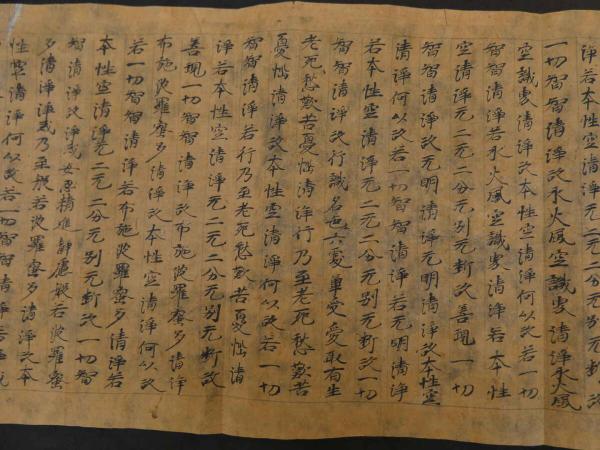 淨若本性空清淨无二无二分无別无断故
一切智智清淨故水火風空識界清淨水火風
空識界清淨故本性空清淨何以故若一切
智智清淨若水火風空識界清淨若本性
空清淨无二无二分无別无断故善現一切
智智清淨故无明清淨无明清淨故本性空
清淨何以故若一切智智清淨若无明清淨
若本性空清淨无二无二分无別无断故一切
智智清淨故行識名色六處觸受愛取有生
老死愁歎苦憂惱清淨行乃至老死愁歎苦
憂惱清淨故本性空清淨何以故若一切
智智清淨若行乃至老死愁歎苦憂惱清
淨若本性空清淨无二无二分无別无断故
善現一切智智清淨故布施波羅蜜多清淨
布施波羅蜜多清淨故本性空清淨何以故
若一切智智清淨若布施波羅蜜多清淨若
本性空清淨无二无二分无別无断故一切智
智清淨故淨戒安忍精進靜慮般若波羅蜜
多清淨淨戒乃至般若波羅蜜多清淨故本
性空清淨何以故若一切智智清淨若